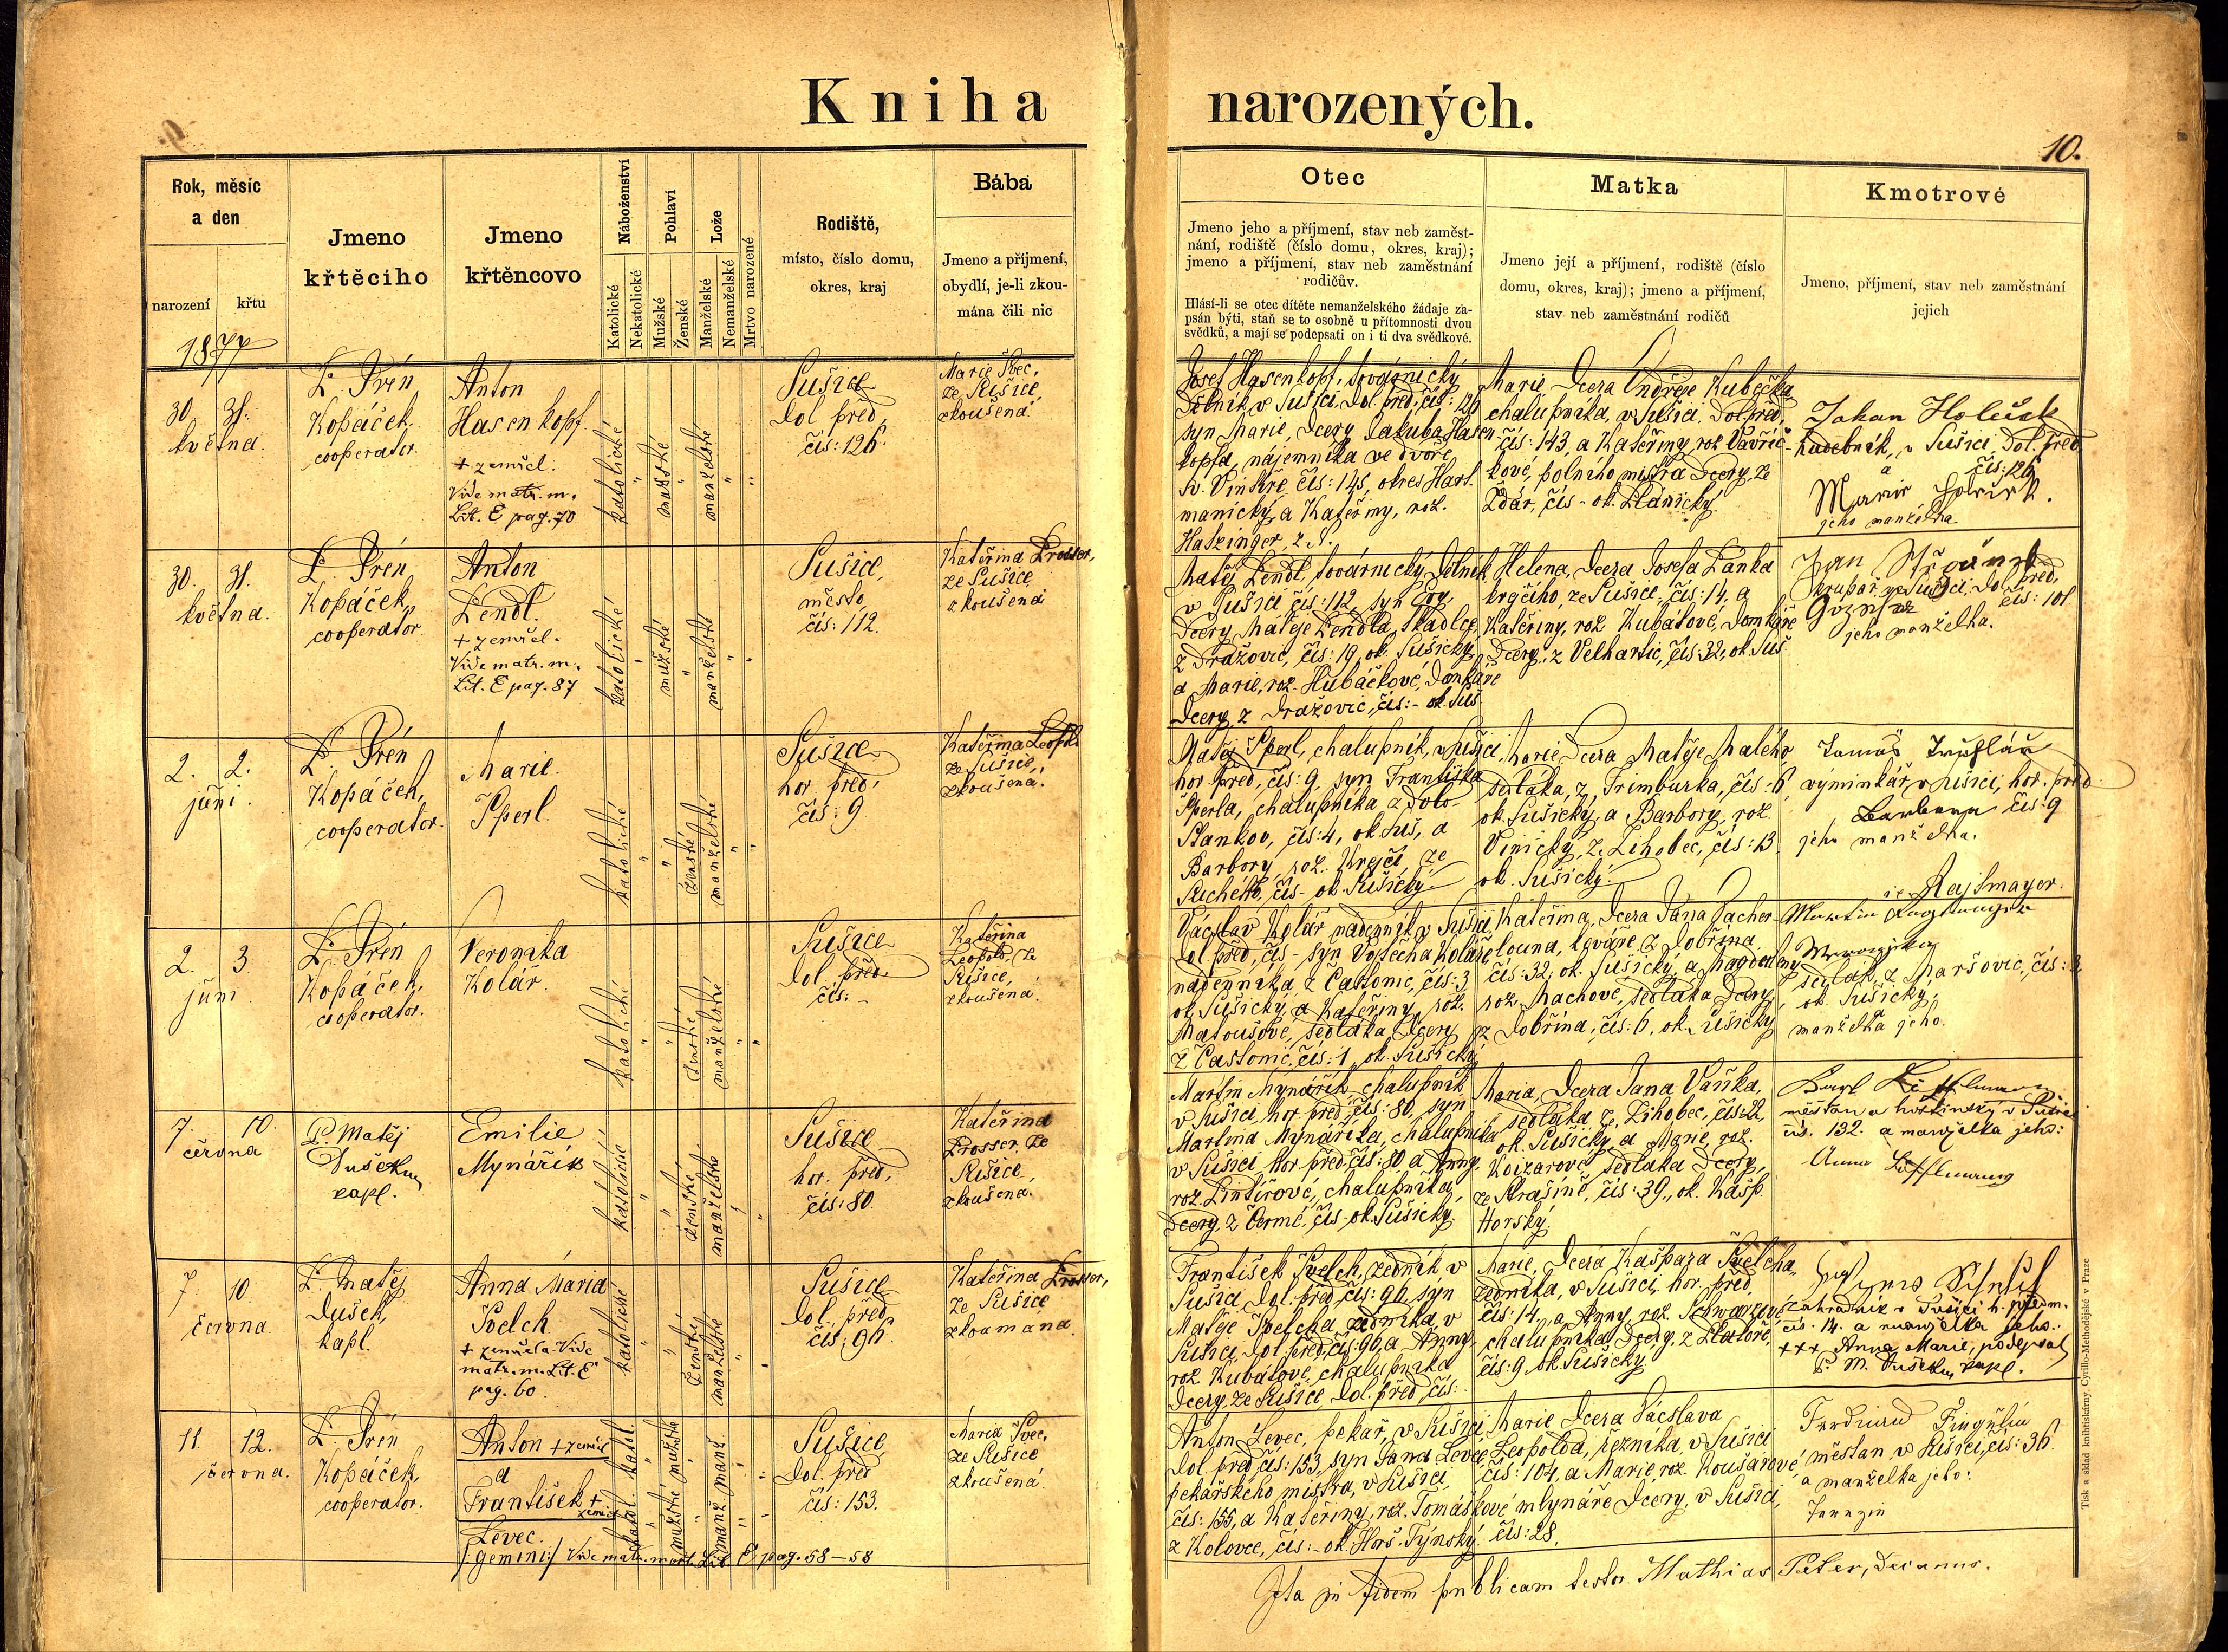 Kniha narozených.
10.
Rok, měsíc
a den
narození
křtu
Jmeno
křtěcího
Jmeno
křtěncovo
Náboženství
Katolické
Nekatolické
Pohlaví
Mužské
Ženské
Lože
Manželské
Nemanželské
Mrtvo narozené
Rodiště,
místo, číslo domu,
okres, kraj
Bába
Jmeno a příjmení,
obydlí, je-li zkou-
mána čili nic
Otec
Jmeno jeho a příjmení, stav neb zaměst-
nání, rodiště (číslo domu, okres, kraj);
jmeno a příjmení, stav neb zaměstnání
rodičův.
Hlásí-li se otec dítěte nemanželského žádaje za-
psán býti, staň se to osobně u přítomnosti dvou
svědků, a mají se podepsati on i ti dva svědkové.
Matka
Jmeno její a příjmení, rodiště (číslo
domu, okres, kraj); jmeno a příjmení,
stav neb zaměstnání rodičů
Kmotrové
Jmeno, příjmení, stav neb zaměstnání
jejich
1877
30. 31.
května.
P. Irén
Kopáček,
cooperator.
Anton
Hasenkopf.
+ zemřel.
Vide matr. m.
Lit. E pag. 70
katolické
mužské
manželské
Sušice
dol. před,
čís: 126.
Marie Švec,
ze Sušice,
zkoušená
Josef Hasenkopf, továrnický
dělník v Sušici, dol. před, čís: 126
syn Marie, dcery Jakuba Hasen
kopfa, nájemníka ve dvoře
Sv. Vintíře čís: 145, okres Hart-
manický, a Kateřiny, roz.
Hatzinger, z
Marie, dcera Ondřeje Kubečka
chalupníka, v Sušici, dol. před,
čís: 143, a Kateřiny, roz. Vavřič-
kové, polního mistra dcery, ze
Žďár, čís - ok. Plánický.
Johan Holeček
hudebník, v Sušici, dol. před
čís: 126
a
Marie Holeček.
jeho manželka.
30. 31.
května.
P. Irén
Kopáček,
cooperator.
Anton
Lendl.
+ zemřel.
Vide matr. m.
Lit. E pag. 87
katolické
mužské
manželské
Sušice,
město
čís: 112.
Kateřina Prosser,
ze Sušice
zkoušená
Matěj Lendl, továrnický dělník
v Sušici čís: 112, syn
dcery Matěje Lendla, tkadlce
z Dražovic, čís: 19, ok. Sušický,
a Marie, roz. Hubáčkové, domkáře
dcery, z Dražovic, čís: - ok. Suš.
Helena, dcera Josefa Lánka
krejčího, ze Sušice, čís: 14, a
Kateřiny, roz. Kubátové, domkáře
dcery, z Velhartic, čís: 32, ok. Suš.
Jan
krupař, v Sušici, dol. před,
čís: 101
jeho manželka.
2. 2.
juni.
P. Irén
Kopáček,
cooperator.
Marie.
Šperl.
katolické
ženské
manželské
Sušice
hor. před,
čís: 9
Kateřina Leopold
ze Sušice,
zkoušená.
Matěj Šperl, chalupník, v Sušici,
hor. před, čís: 9, syn Františka
Šperla, chalupníka z Dolo-
Stankov, čís: 4, ok. Suš, a
Barbory, roz. Krejčí, ze
Suchého, čís - ok. Sušický.
Marie, dcera Matěje Malého,
sedláka, z Frimburka, čís: 6,
ok. Sušický, a Barbory, roz.
Vinický, z Lihobec, čís: 13
ok. Sušický.
Tomáš Truhlář
výminkář, v Sušici, hor. před
Barbara čís: 9
jeho manželka.
2. 3.
juni
P. Irén
Kopáček,
cooperator.
Veronika
Kolář.
katolické
ženské
manželské
Sušice
dol. před.
čís: -
Kateřina
Leopold, ze
Sušice,
zkoušená.
Václav Kolář nádenník v Sušici
dol. před, čís - syn Vojtěcha Koláře
nádenníka z Častonic, čís: 3
ok. Sušický, a Kateřiny, roz.
Matoušové, sedláka dcery
z Častonic, čís: 1, ok. Sušický
Kateřina, dcera Jana Pacher-
louna, kováře, z Dobřína.
čís: 32, ok. Sušický, a Magdaleny
roz. Machové, sedláka dcery,
z Dobřína, čís: 6, ok. Sušický
Rajtmayer.
Martin
Weronyka
sedlák, z Maršovic, čís: 3
ok. Sušický,
a
manželka jeho.
7. 10.
června
P. Matěj
Dušek,
kapl.
Emilie
Mynářík
katolické
ženské
manželské
Sušice
hor. před,
čís: 80.
Kateřina
Prosser, ze
Sušice,
zkoušená.
Martin Mynářík, chalupník
v Sušici, hor. před, čís: 80, syn
Martina Mynáříka, chalupníka
v Sušici, hor. před, čís: 80, a Anny,
roz. Lintírové, chalupníka,
dcery, z Čermé, čís - ok. Sušický.
Maria, dcera Jana Vaňka,
sedláka, z Lihobec, čís: 22,
ok. Sušický, a Marie, roz.
Koizarové, sedláka dcery,
ze Strašína, čís: 39, ok. Kašp.
Horský.
Karl Löfflmann
měšťan a hostinský v Sušici
čís. 132. a manželka jeho:
Anna Löfflmann
7. 10.
června
P. Matěj
Dušek,
kapl.
Anna Maria
Švelch
+ zemřela. Vide
matr. m. Lit. E
pag. 60.
katolické
ženské
manželské
Sušice
dol. před,
čís: 96
Kateřina Prosser,
ze Sušice
zkoumana.
František Švelch, zedník v
Sušici, dol. před, čís: 96, syn
Matěje Švelcha, zedníka, v
Sušici, dol. před, čís: 96, a Anny,
roz. Kubátové, chalupníka
dcery, ze Sušice, dol. před, čís: -
Marie, dcera Kašpara Švelcha,
zedníka, v Sušici, hor. před,
čís: 14, a Anny, roz.
chalupníka dcery, z Zlatoře,
čís: 9, ok. Sušický.
zahradník v Sušici h. předm.
čís. 14. a manželka jeho:
+++ Anna Marie, podepsal
P. M. Dušek, kapl.
11. 12.
června.
P. Irén
Kopáček,
cooperator.
Anton + zemřel
a
František +
zemřel
Levec.
/: gemini :/ Vide matr. mort. Lit. E pag. 58-58
katol. katol.
mužské mužské
manž. manž.
Sušice
dol. před
čís: 153.
Maria Švec,
ze Sušice
zkoušená.
Anton Levec, pekař, v Sušici,
dol. před, čís: 153, syn Jana Levce
pekařského mistra, v Sušici,
čís: 155, a Kateřiny, roz. Tomáškové
z Kolovce, čís: - ok. Horš. Týnský.
Marie dcera Václava
Leopolda, řezníka, v Sušici
čís: 104, a Marie, roz. Roušarové
mlynáře dcery, v Sušici,
čís: 28.
Ferdinand
měšťan, v Sušici, čís: 36.
a manželka jeho:
Ita in fidem publicam testor. Mathias Peter, Decanus.
Tisk a sklad knihtiskárny Cyrillo-Methodějské v Praze